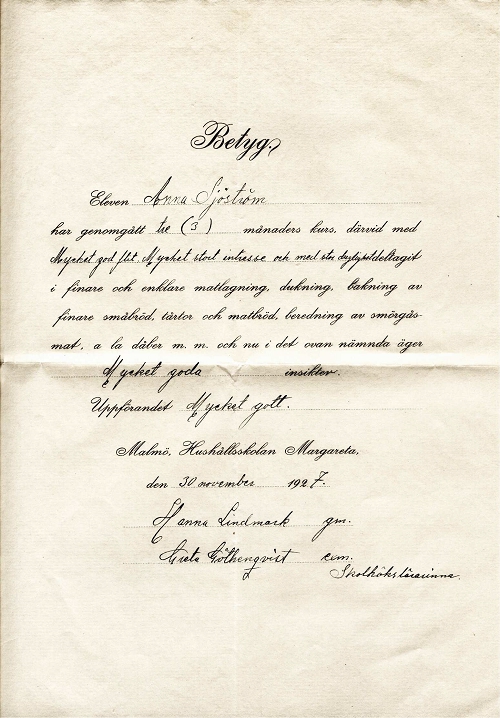 Betyg.
Eleven Anna Sjöström
har genomgått tre (3) månaders kurs, därvid med
Mycket god flit, Mycket stort intresse och med stor duglighet deltagit
i finare och enklare matlagning, dukning, bakning av
finare småbröd, tårtor och matbröd, beredning av smörgås-
mat, a la dåber m. m. och nu i det ovan nämnda äger
Mycket goda insikter.
Uppförandet Mycket gott.
Malmö, Hushållsskolan Margareta,
den 30 november 1927.
Hanna Lindmark gm.
Greta Göthenqvist exm.
Skolkökslärarinna.